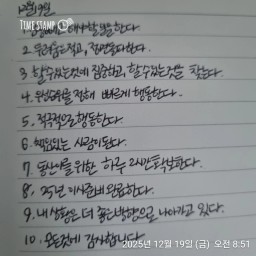 12월19일
TIME STAMP
2. 두려움없고, 전념을다한다.
3. 할수있는것에 집중하고, 할수있는것을 찾는다.
4. 우선순위를 정해 빠르게 행동한다.
5. 적극적으로 행동한다.
6. 책임있는 사람이된다.
7. 동산이를 위한 하루 2시간 확보한다.
8. 25년 이사준비 완료한다.
9. 내 상황은 더 좋은방향으로 나아가고 있다.
10. 모든것에 감사합니다.
2025년 12월 19일 (금) 오전 8:51